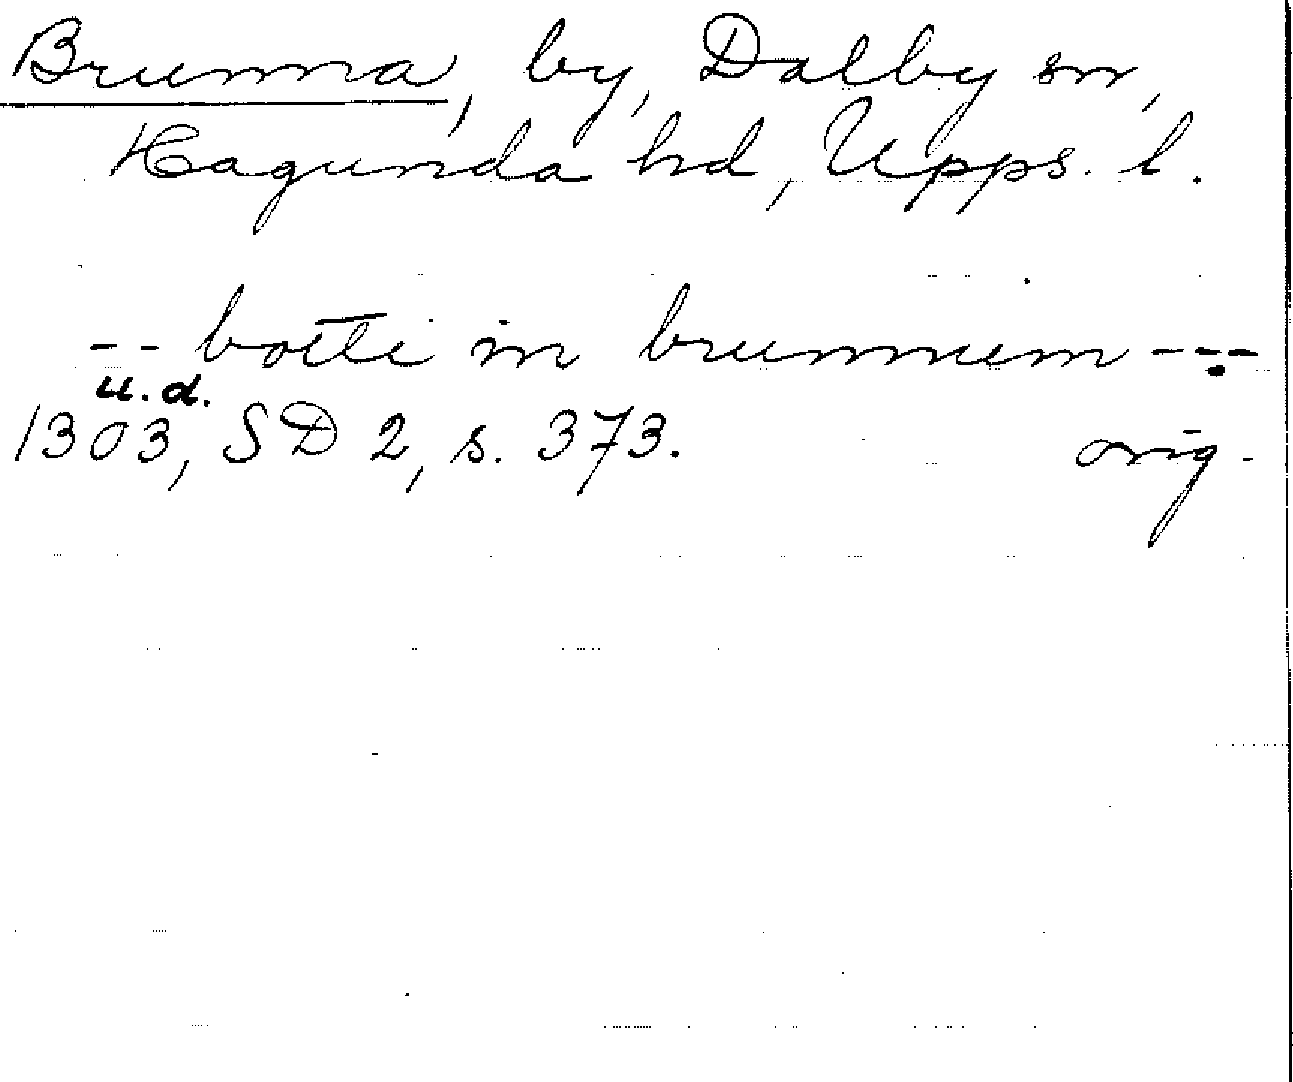 Brunna, by, Dalby sn,
Hagunda hd, Upps. l.
-- botti in brunnum ---
u.d.
1303, SD 2, s. 373. orig.